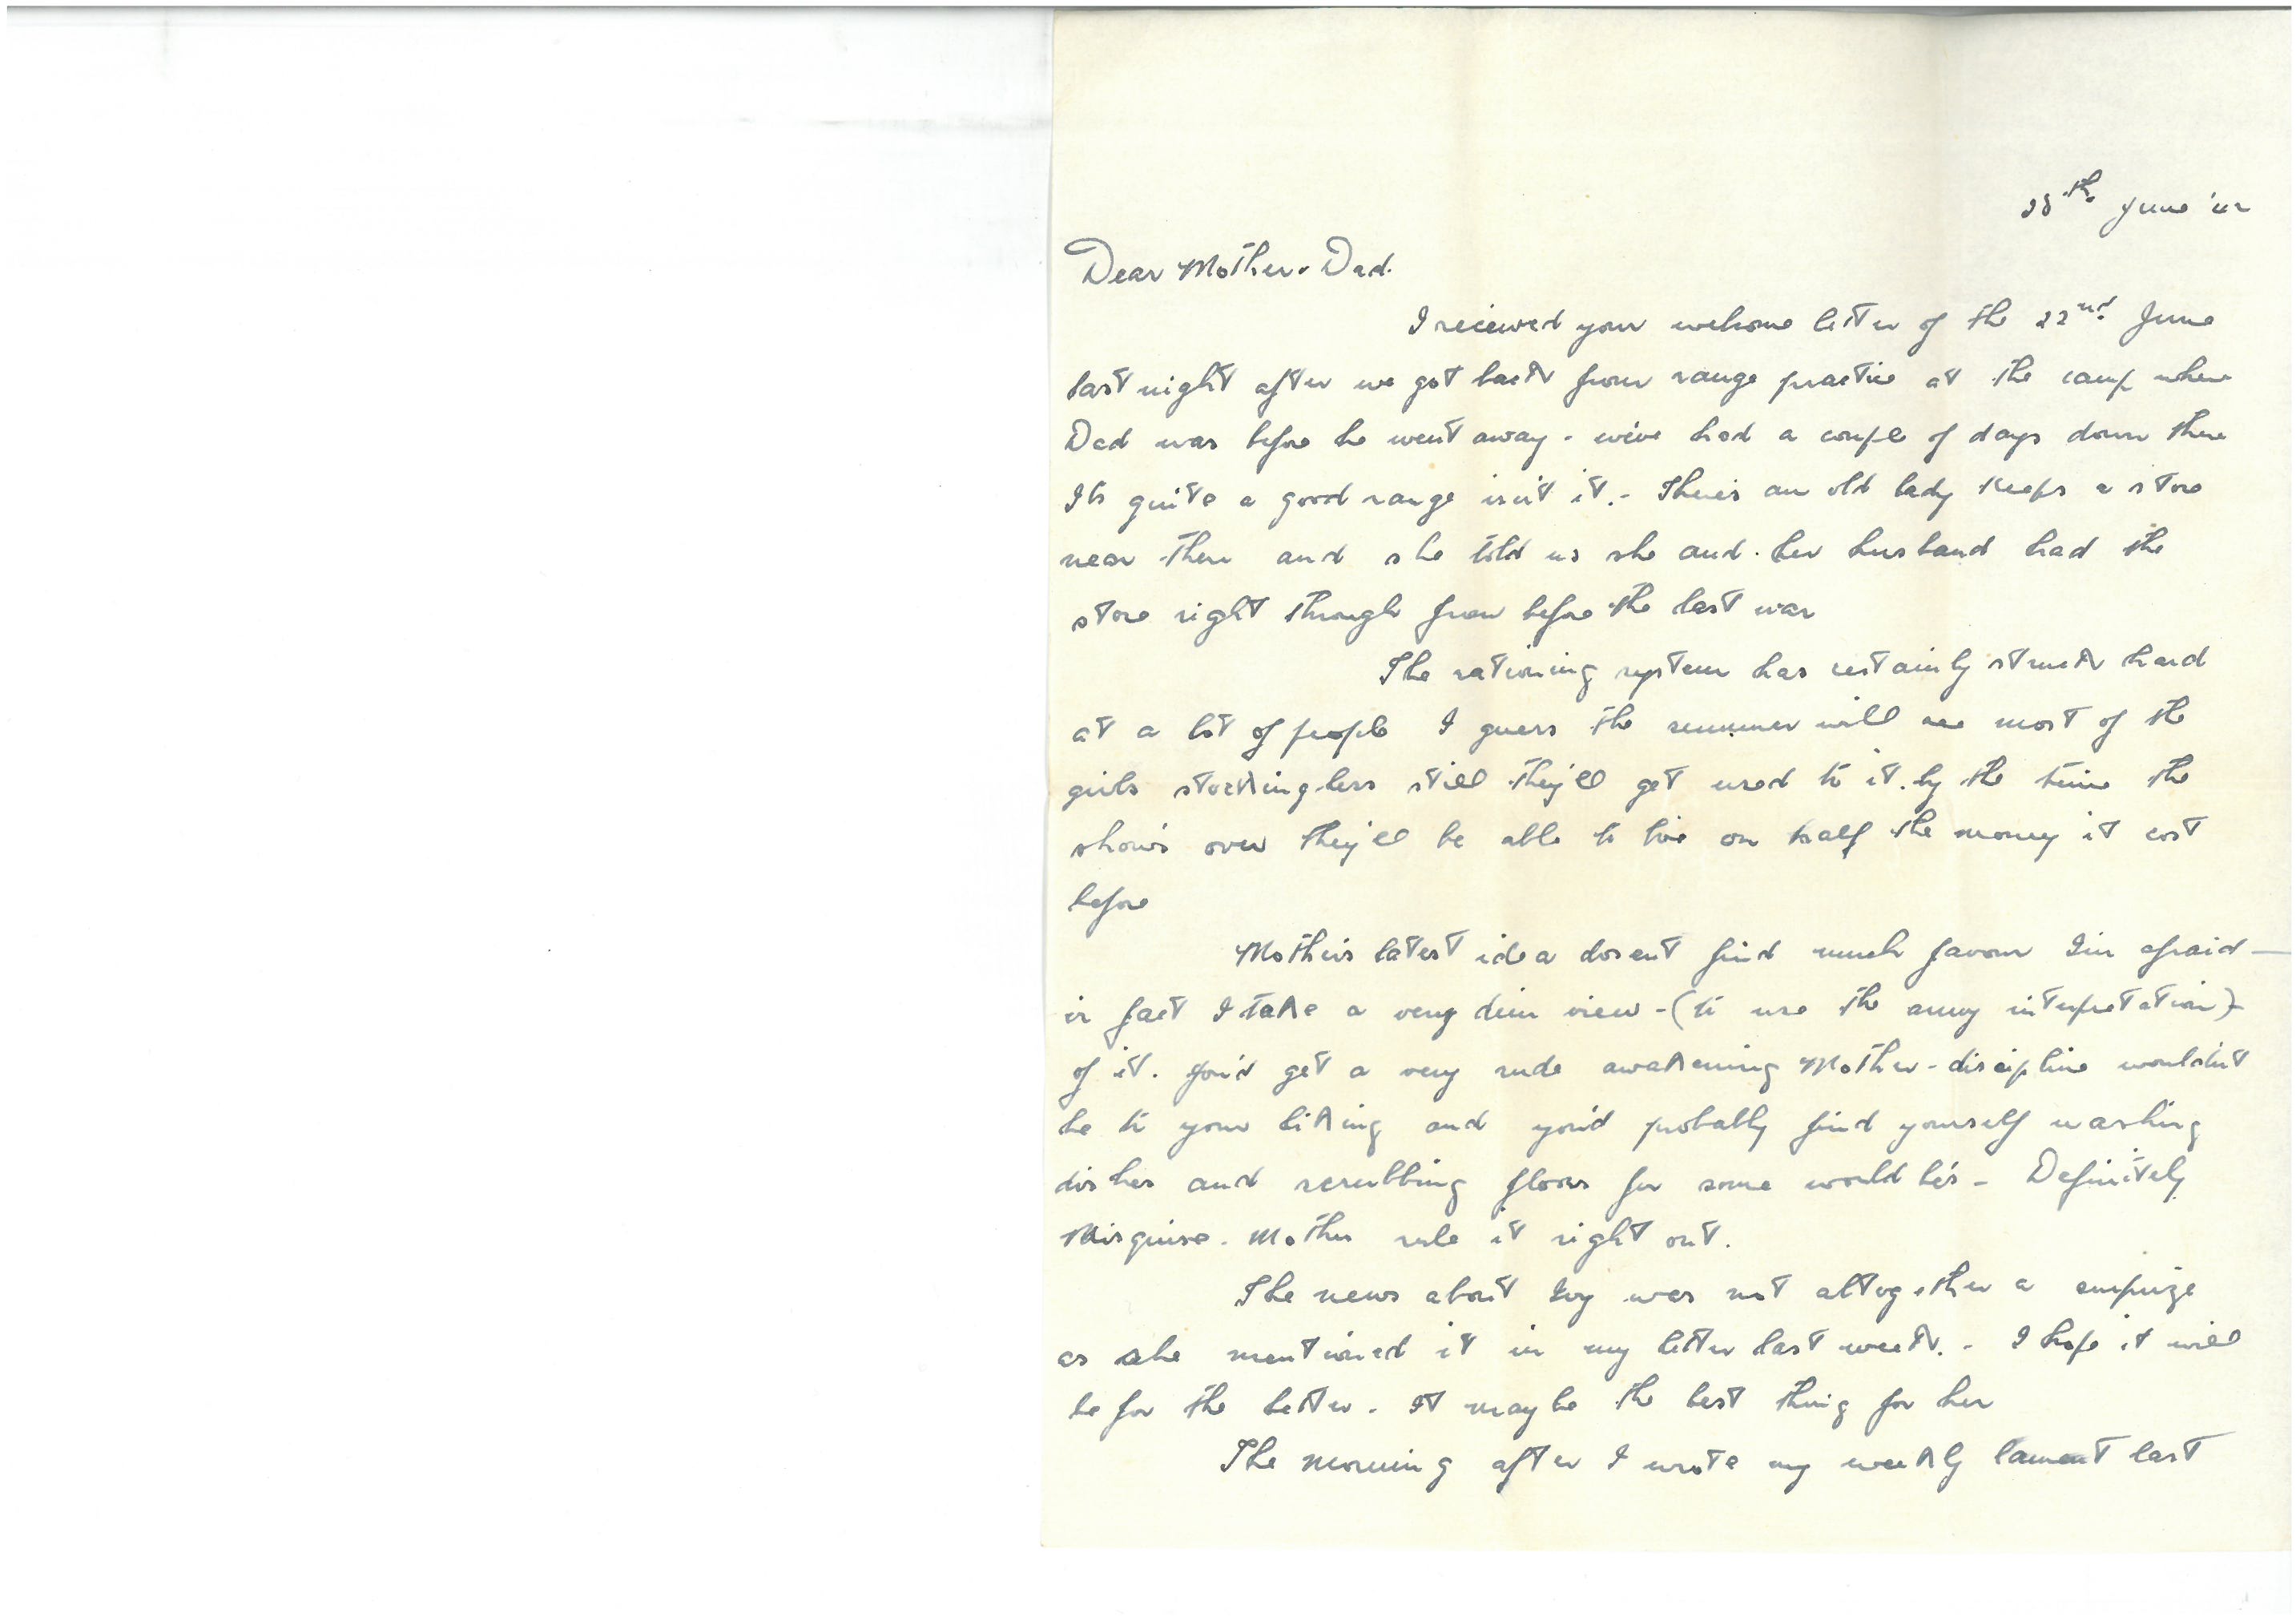 28th June '42
Dear Mother & Dad.
I recieved your welcome letter of the 22nd June
last night after we got back from range practice at the camp where
Dad was before he went away - we've had a couple of days down there
Its quite a good range isn't it. - There's an old lady keeps a store
near there and she told us she and her husband had the
store right through from before the last war
The rationing system has certainly struck hard
at a lot of people I guess the summer will see most of the
girls stockingless still they'll get used to it. by the time the
show's over they'll be able to live on half the money it cost
before
Mother's latest idea dosent find much favour I'm afraid —
in fact I take a very dim view - (to use the army interpretation) -
of it. You'd get a very rude awakening Mother - discipline wouldn't
be to your liking and you'd probably find yourself washing
dishes and scrubbing floors for some would be's - Definitely
Mother rule it right out.
The news about Ivy was not altogether a surprize
as she mentioned it in my letter last week. - I hope it will
be for the better. It maybe the best thing for her
The morning after I wrote my weekly lament last